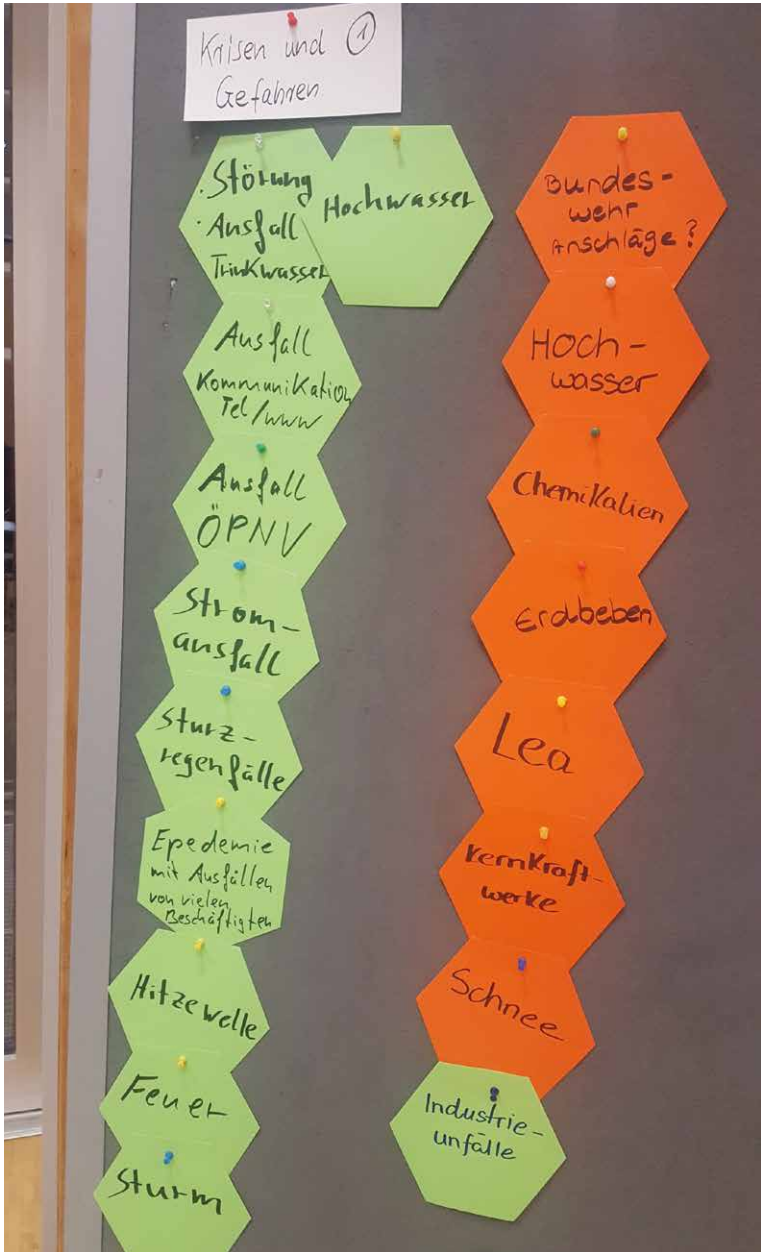 Krisen und ①
Gefahren
· Störung
· Ausfall
Trinkwasser
Hochwasser
Ausfall
Kommunikation
Tel/www
Ausfall
ÖPNV
Strom-
ausfall
Sturz-
regenfälle
Epedemie
mit Ausfällen
von vielen
Beschäftigten
Hitzewelle
Feuer
Sturm
Bundes-
wehr
Anschläge?
Hoch-
wasser
Chemikalien
Erdbeben
Lea
Kernkraft-
werke
Schnee
Industrie-
unfälle